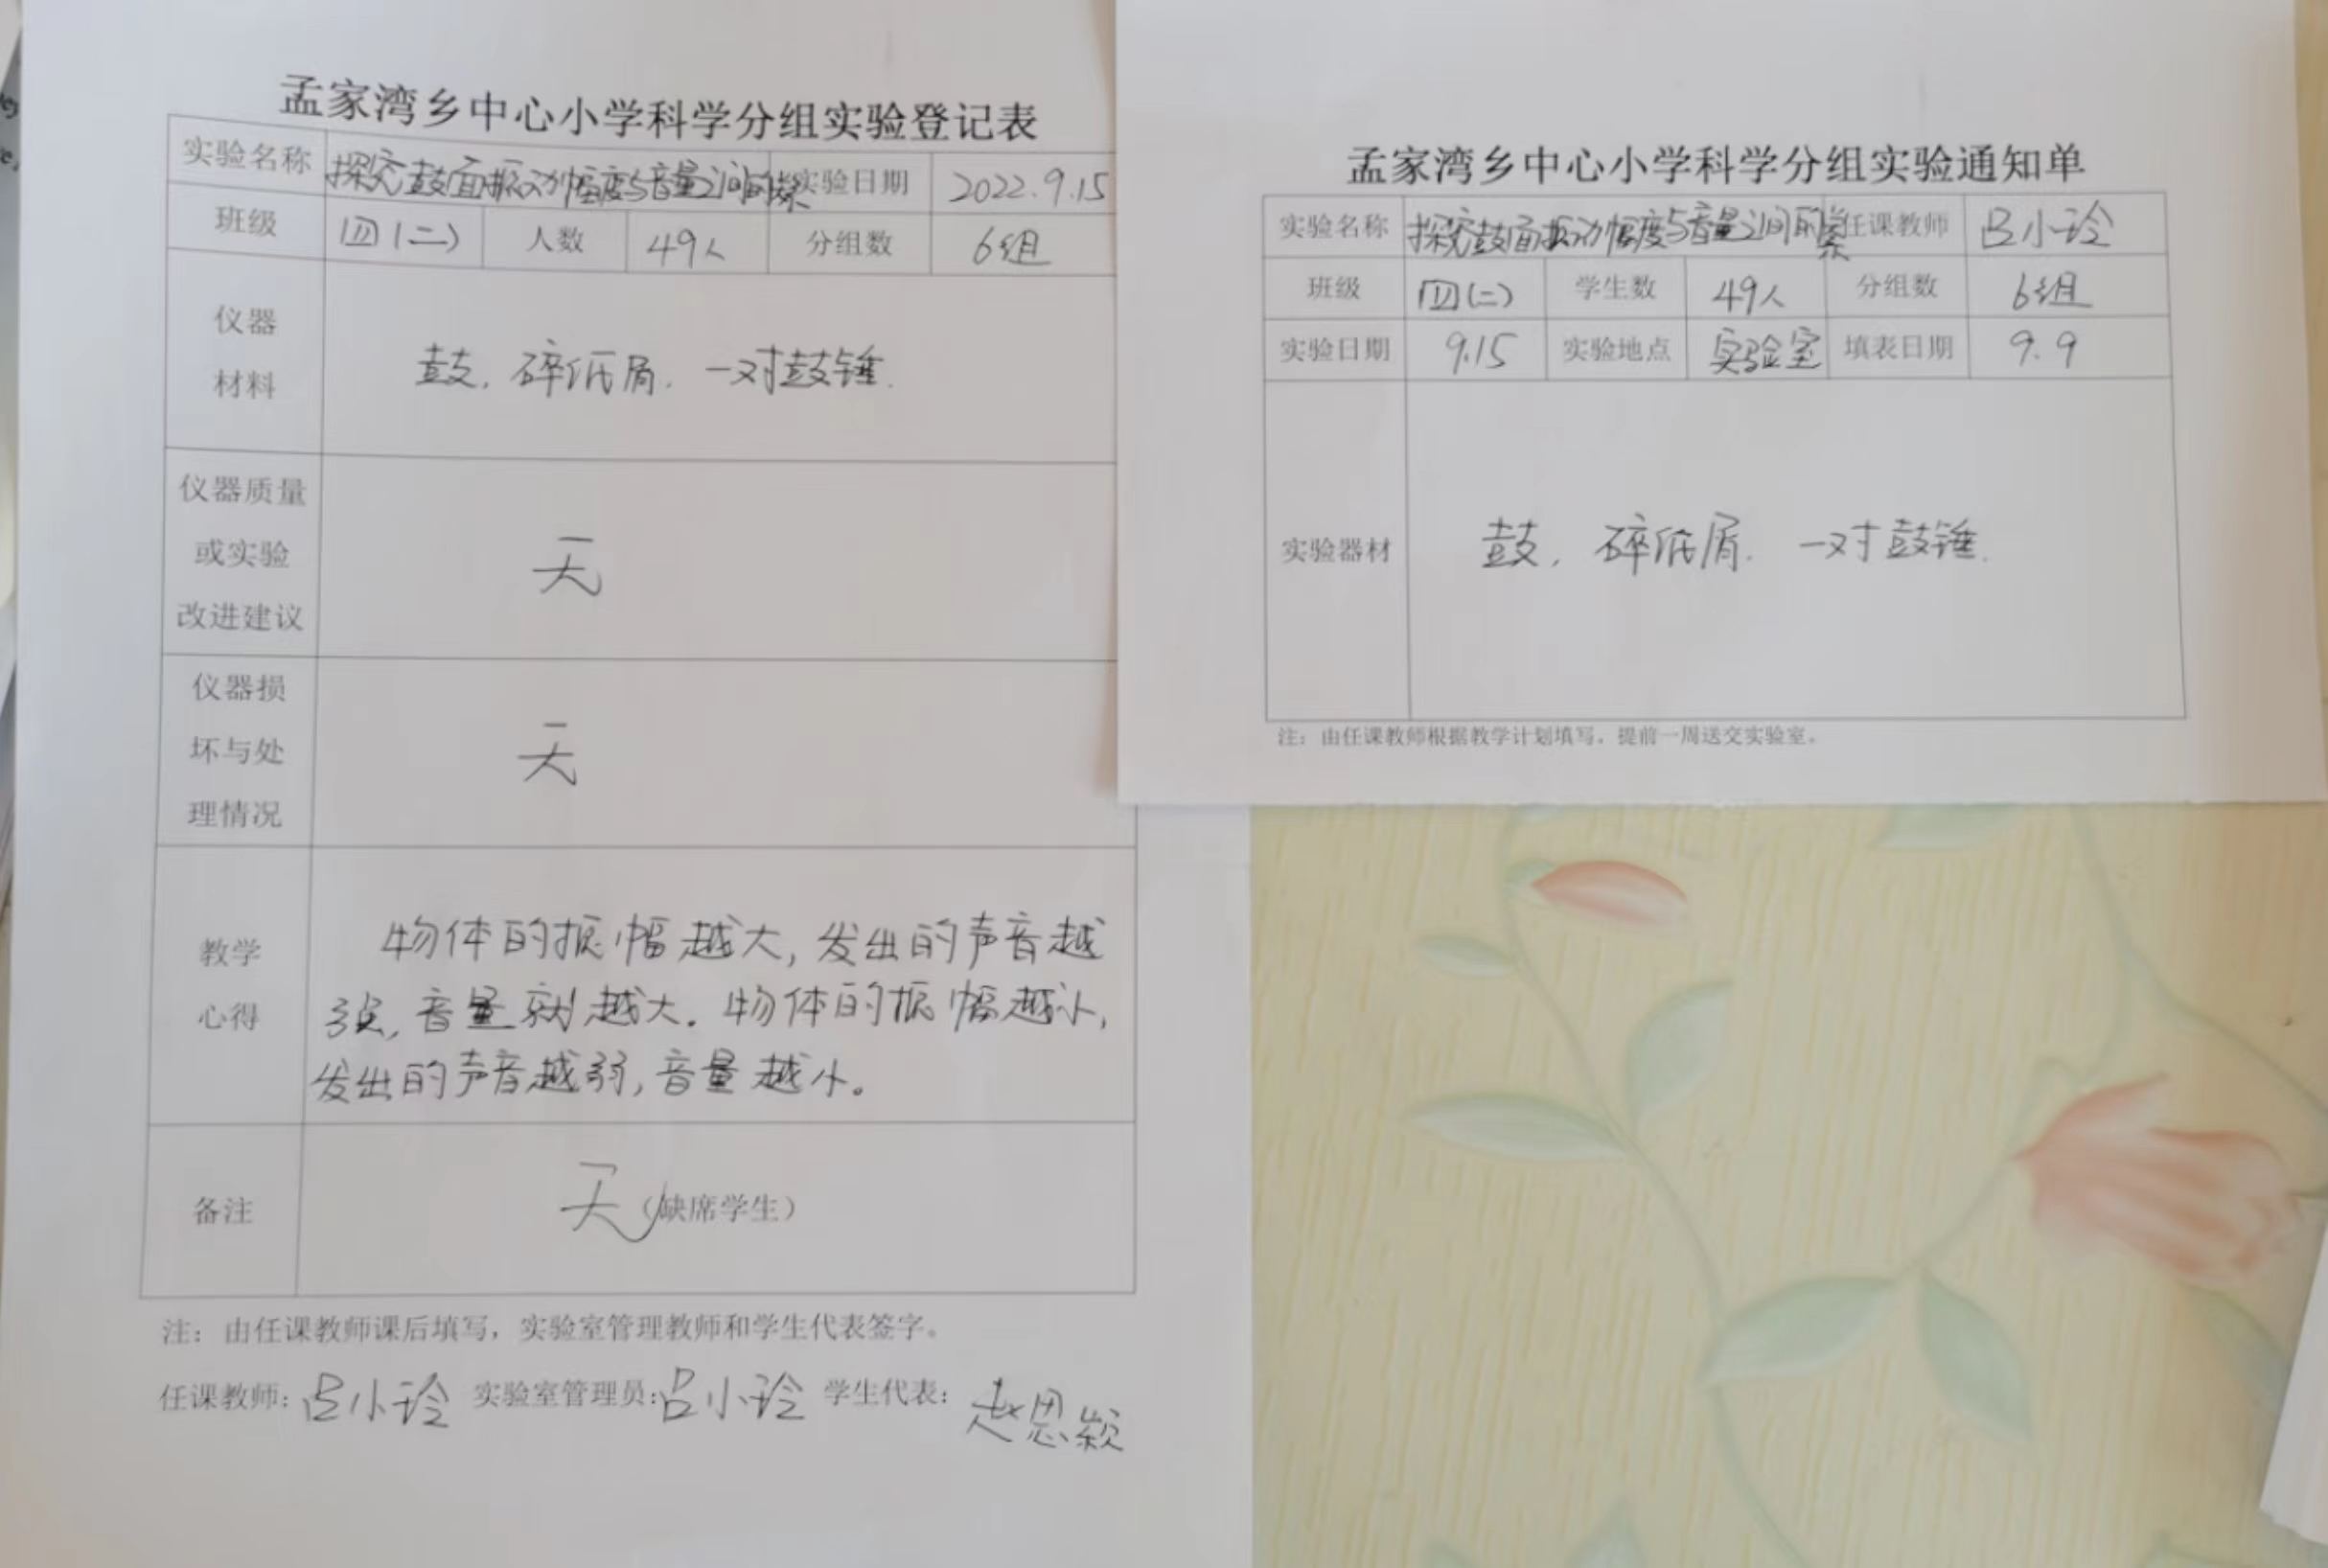 孟家湾乡中心小学科学分组实验登记表
实验名称 探究鼓面振动幅度与音量之间的关系 实验日期 2022.9.15
班级 四(二) 人数 49人 分组数 6组
仪器
材料
鼓, 碎纸屑. 一对鼓锤.
仪器质量
或实验
改进建议
无
仪器损
坏与处
理情况
无
教学
心得
物体的振幅越大, 发出的声音越
强, 音量就越大. 物体的振幅越小,
发出的声音越弱, 音量越小。
备注 无 (缺席学生)
注：由任课教师课后填写，实验室管理教师和学生代表签字。
任课教师: 吕小玲 实验室管理员: 吕小玲 学生代表: 赵思颖
孟家湾乡中心小学科学分组实验通知单
实验名称 探究鼓面振动幅度与音量之间的关系 任课教师 吕小玲
班级 四(二) 学生数 49人 分组数 6组
实验日期 9.15 实验地点 实验室 填表日期 9.9
实验器材 鼓, 碎纸屑. 一对鼓锤.
注：由任课教师根据教学计划填写。提前一周送交实验室。